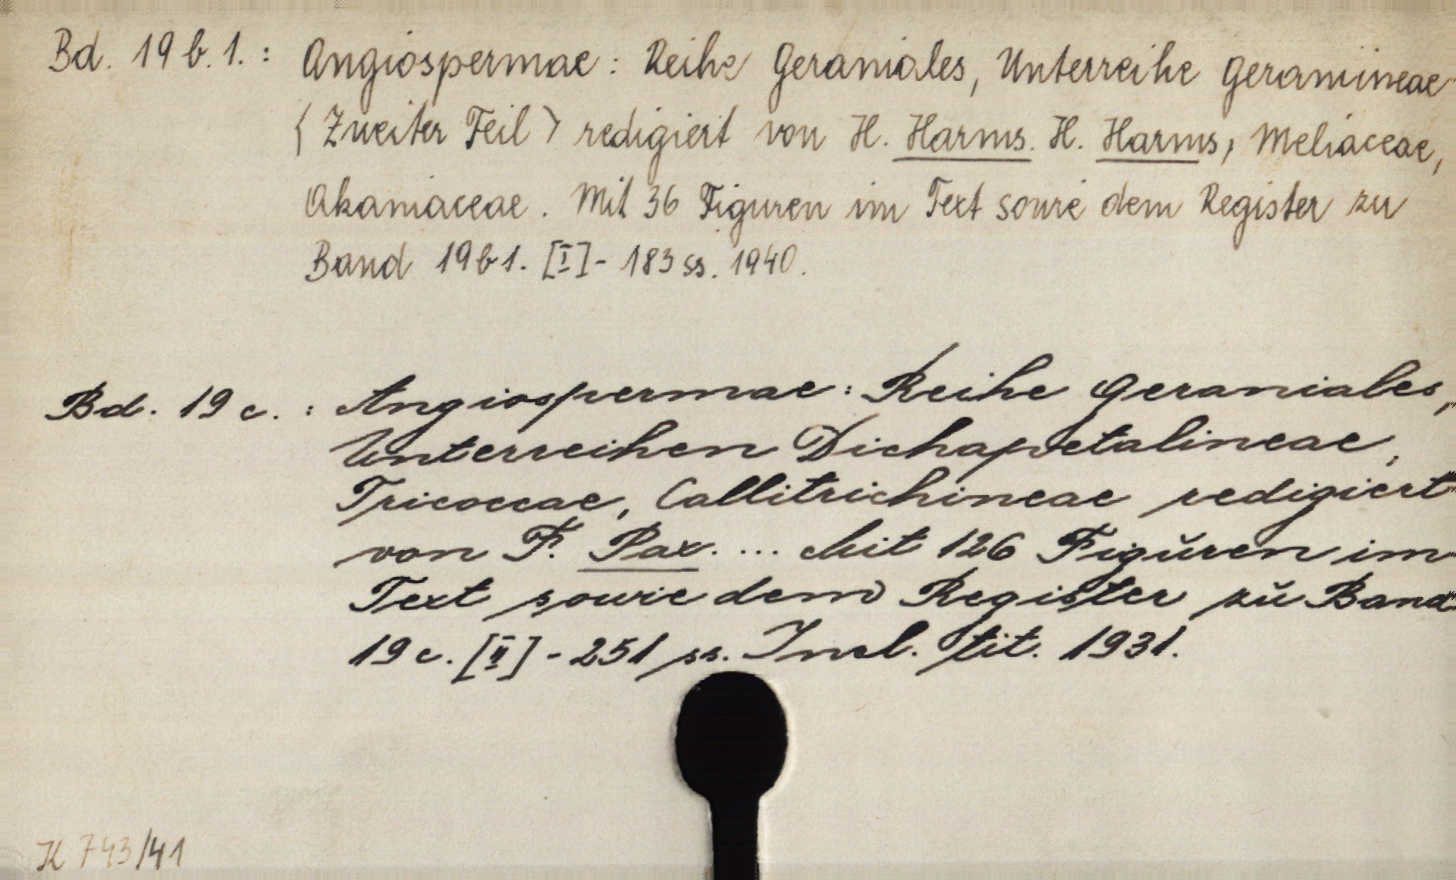 Bd. 19 b. 1. : Angiospermae : Reihe Geraniales, Unterreihe Geraniineae
〈Zweiter Teil〉 redigiert von H. Harms. H. Harms, Meliaceae,
Akaniaceae. Mit 36 Figuren im Text sowie dem Register zu
Band 19 b 1. [I] - 183 ss. 1940.
Bd. 19 c. : Angiospermae : Reihe Geraniales,
Unterreihen Dichapetalineae,
Tricoccae, Callitrichineae redigiert
von F. Pax. ... Mit 126 Figŭren im
Text sowie dem Register zŭ Band
19 c. [II] - 251 ss. Incl. tit. 1931.
K 743/41